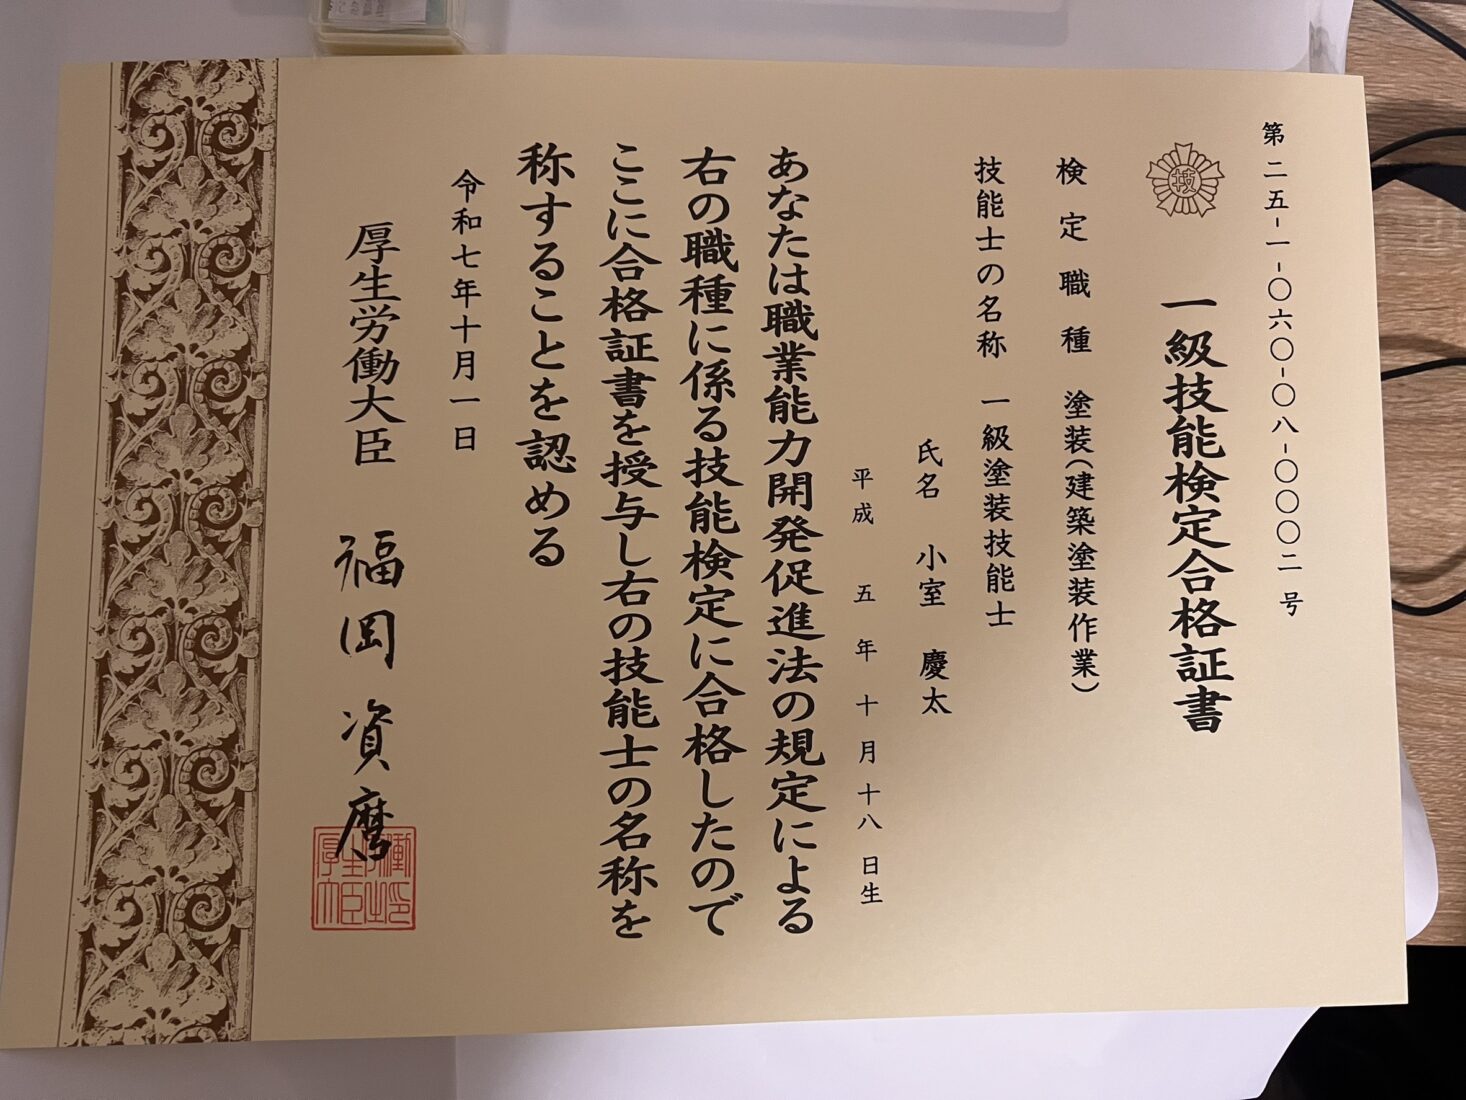 第二五-一-〇六〇-〇八-〇〇〇二号
技
一級技能検定合格証書
検定職種 塗装(建築塗装作業)
技能士の名称 一級塗装技能士
氏名 小室 慶太
平成 五 年 十 月 十八 日生
あなたは職業能力開発促進法の規定による
右の職種に係る技能検定に合格したので
ここに合格証書を授与し右の技能士の名称を
称することを認める
令和七年十月一日
厚生労働大臣 福岡資麿